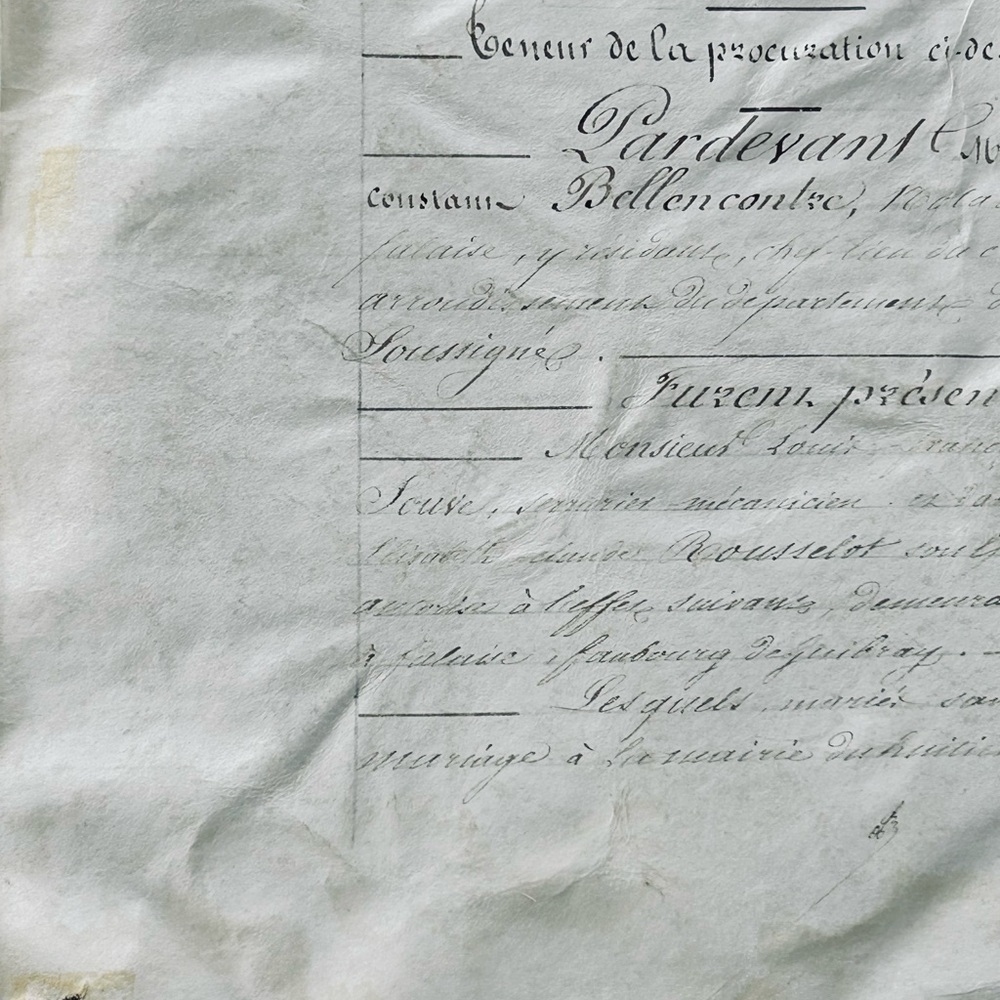 Teneur de la procuration ci-de
Pardevant Me
constant Bellencontre, Nota
falaise, y résidant, chef-lieu du c
arrondissement du département d
Soussigné.
Furent présen
Monsieur Louis Franç
Jouve, serrurier mécanicien et Da
Elisabeth claude Rousselot son é
autorise à l'effet suivant, demeura
à falaise, faubourg de guibray.
Lesquels, mariés san
mariage à la mairie du huitiè